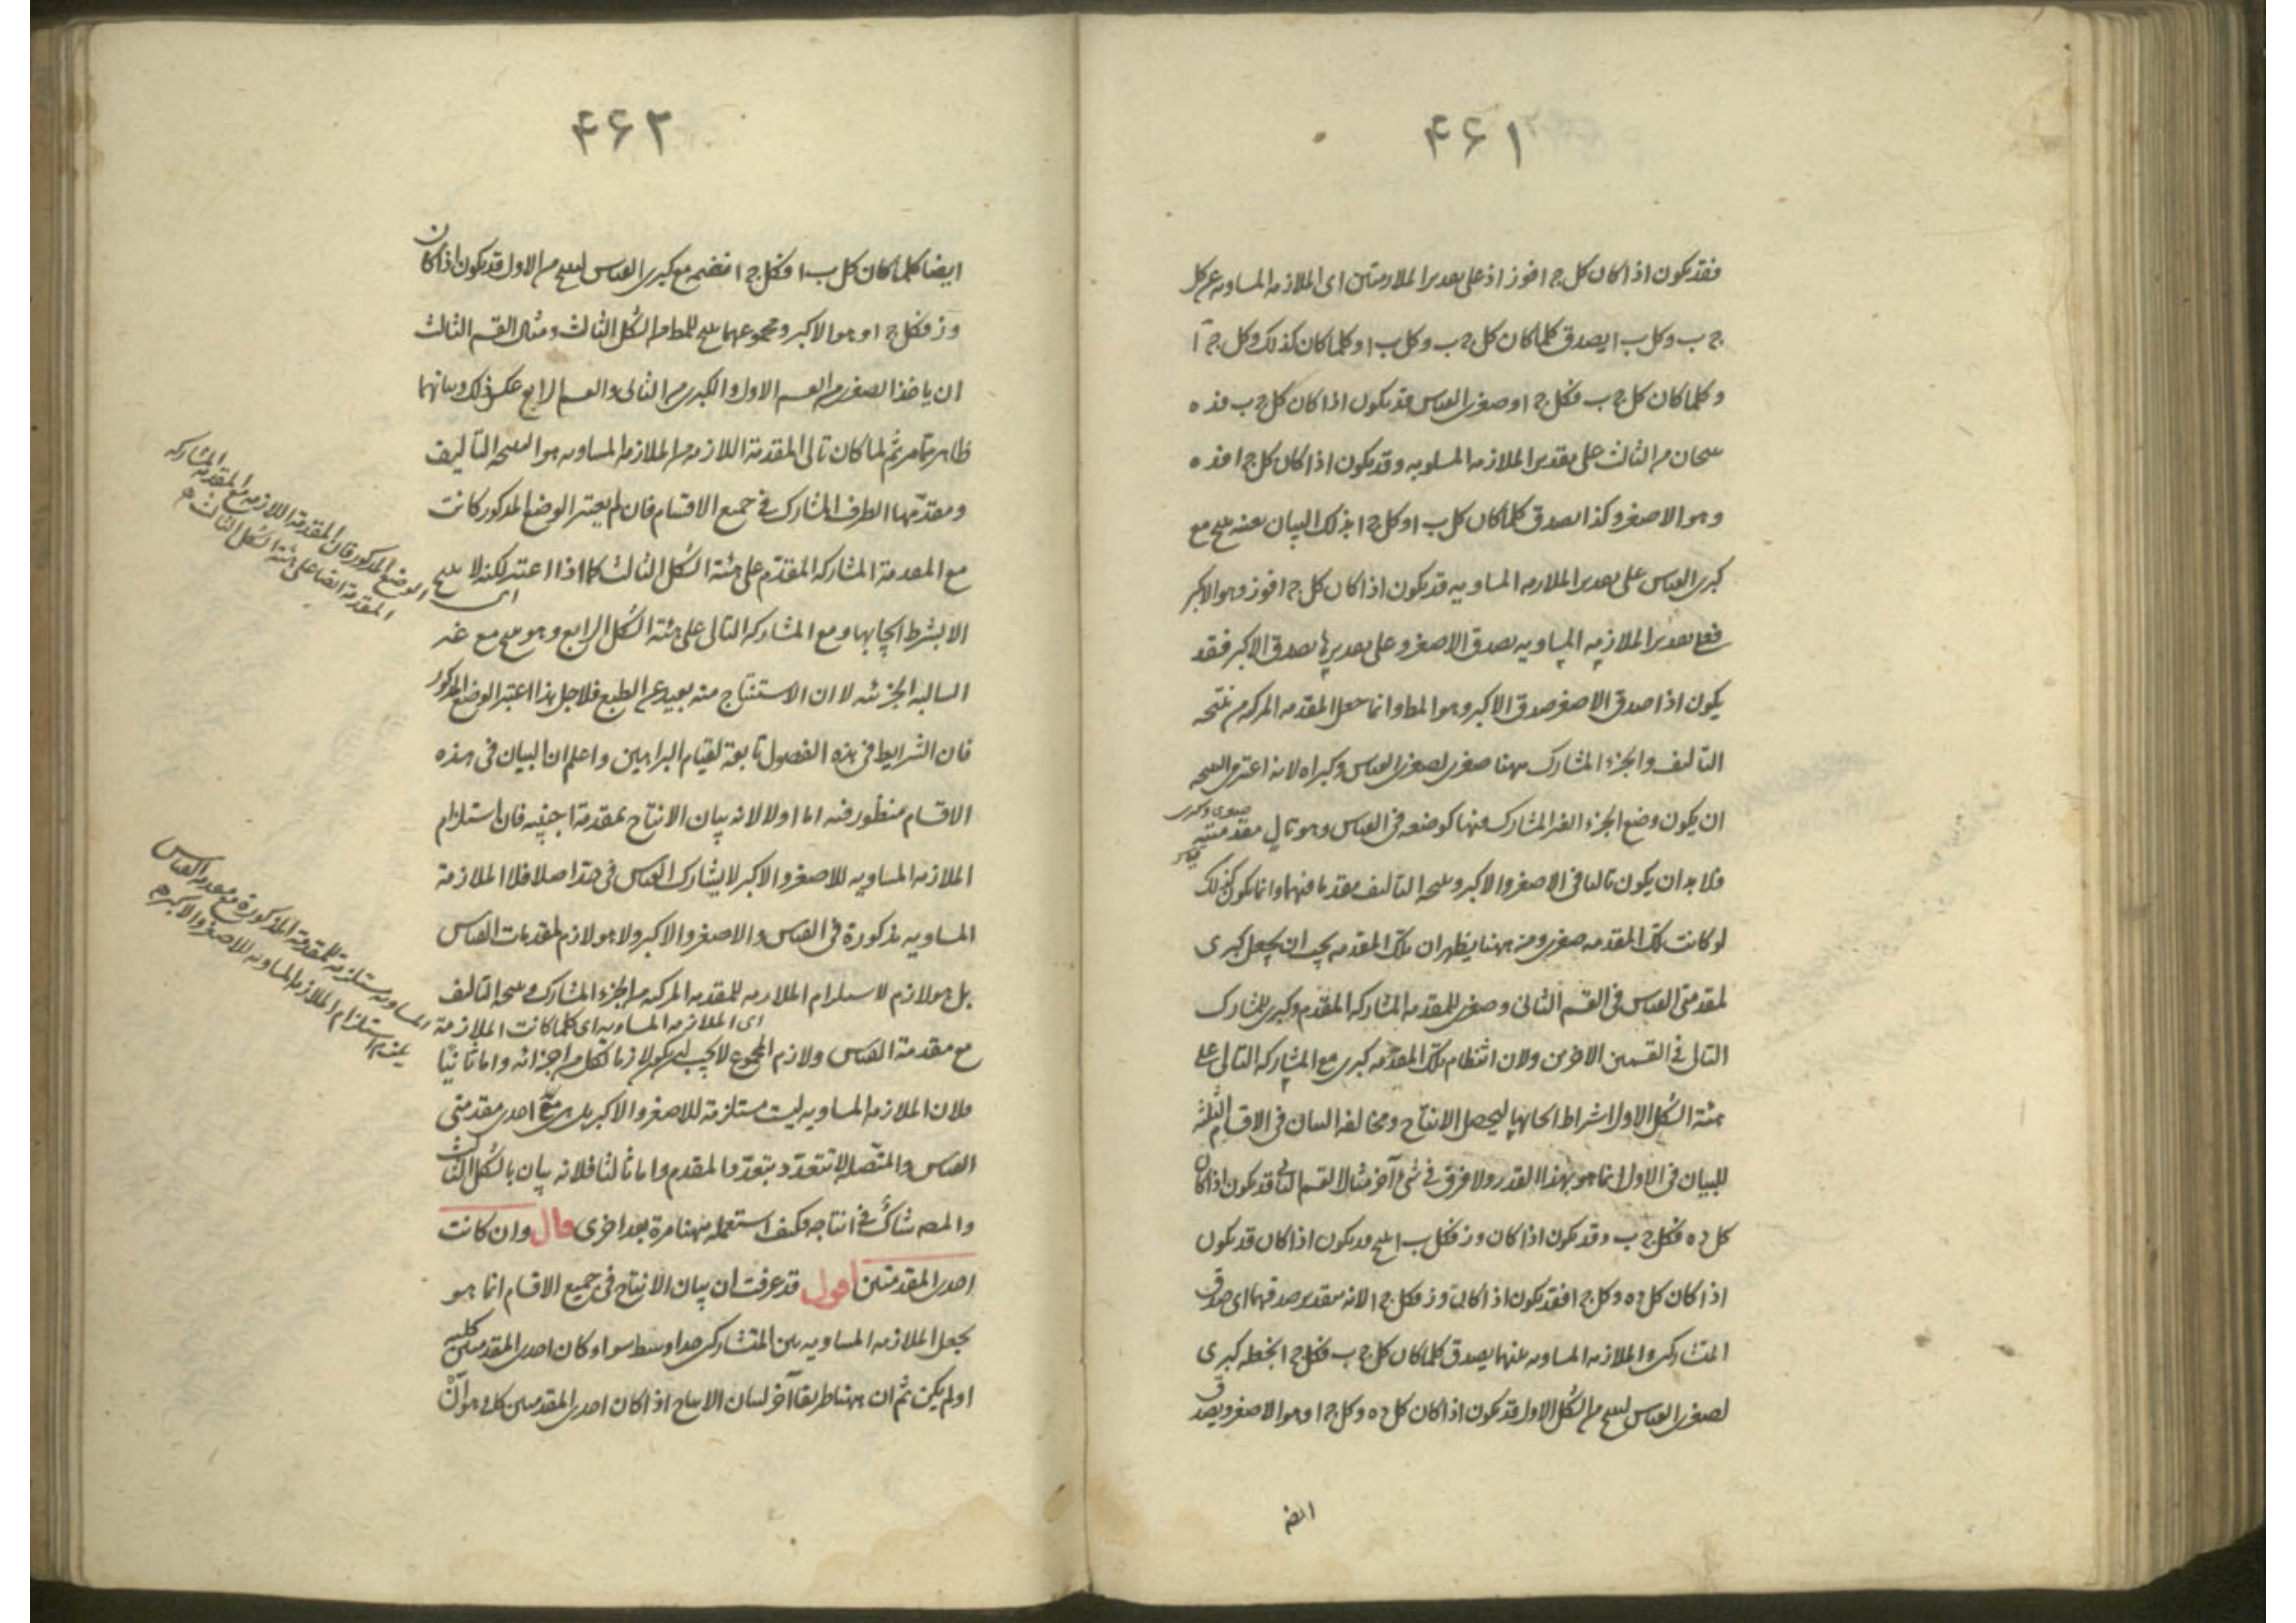 ۴۶۱
فقد يكون اذا كان كل ج ا فوز اذ على الملازمتين اى الملازمه المساويه عن كل
ج ب وكل ب ا يصدق كلما كان كل ج ب وكل ب ا وكلما كان كذلك وكل ج آ
وكلما كان كل ج ب فكل ج ا وصغرى القياس قد يكون اذا كان كل ج ب فده
ينتجان من الثالث على تقدير الملازمه المساويه وقد يكون اذا كان كل ج ا فده
وهو الاصغر وكذا يصدق كلما كان كل ب ا وكل ج ا بذلك البيان بعينه ينتج مع
كبرى القياس على تقدير الملازمه المساويه قد يكون اذا كان كل ج ا فوز وهو الاكبر
فعلى تقدير الملازمه المساويه يصدق الاصغر وعلى تقديرها يصدق الاكبر فقد
يكون اذا صدق الاصغر صدق الاكبر وهو المط وانما جعل المقدمه المركبه من نتيجه
التأليف والجزء المشارك ههنا صغرى لصغرى القياس وكبراه لانه اعتبر فى النتيجه
ان يكون وضع الجزء الغير المشارك منها كوضعه فى القياس وهو تالى مقدمتيه
صغرى وكبرى
فلا بد ان يكون تاليا فى الاصغر والاكبر ونتيجه التأليف مقدما فيهما وانما يكون كذلك
لو كانت تلك المقدمه صغرى ومن ههنا يظهر ان تلك المقدمه يجب ان يجعل كبرى
لمقدمتى القياس فى القسم الثانى وصغرى للمقدمه المشاركه المقدم وكبرى للمشارك
التالى فى القسمين الاخرين ولان انتظام تلك المقدمه كبرى مع المشاركه التالى على
هيئة الشكل الاول اشتراط ايجابها ليحصل الانتاج ومخالفه البيان فى الاقسام الثلثه
للبيان فى الاول انما هو بهذا القدر ولا فرق فى شئ آخر مثال القسم الثانى قد يكون اذا كان
كل ده فكل ج ب وقد يكون اذا كان وز فكل ب ا ينتج قد يكون اذا كان قد يكون
اذا كان كل ده وكل ج ا فقد يكون اذا كان وز فكل ج ا لانه بتقدير صدقهما اى صدق
المتشاركين والملازمه المساويه بينهما يصدق كلما كان كل ج ب فكل ج ا نجعله كبرى
لصغرى القياس لينتج من الشكل الاول قد يكون اذا كان كل ده وكل ج ا وهو الاصغر ويصدق
ايضا
۴۶۲
ايضا كلما كان كل ب ا فكل ج ا فنضم مع كبرى القياس لينتج من الاول قد يكون اذا كان
وز فكل ج ا وهو الاكبر ومجموعهما ينتج للمط من الشكل الثالث ومثال القسم الثالث
ان ياخذ الصغرى من القسم الاول والكبرى من الثانى والقسم الرابع عكس ذلك وبيانهما
ظاهر مما مر ثم لما كان تالى المقدمة اللازمه من الملازمه المساويه هو النتيجه التأليف
ومقدمها الطرف المشارك فى جميع الاقسام فان لم يعتبر الوضع المذكور كانت
مع المقدمة المشاركه المقدم على هيئة الشكل الثالث كما اذا اعتبر لكنه لا ينتج
الا بشرط ايجابها ومع المشاركه التالى على هيئة الشكل الرابع وهو ينتج مع غير
السالبه الجزئيه لا ان الاستنتاج منه بعيد عن الطبع فلاجل هذا اعتبر الوضع المذكور
فان الشرايط فى هذه الفصول تابعة لقيام البراهين واعلم ان البيان فى هذه
الاقسام منظور فيه اما اولا لانه بيان الانتاج بمقدمة اجنبيه فان استلزام
الملازمه المساويه للاصغر والاكبر لا يشارك القياس فى حد اصلا فلا الملازمة
المساويه مذكورة فى القياس والاصغر والاكبر ولا هو لازم لمقدمات القياس
بل هو لازم لاستلزام الملازمه للمقدمه المركبه من الجزء المشارك ونتيجه التأليف
اى الملازمه المساويه اى كلما كانت الملازمة
مع مقدمة القياس ولازم المجموع لا يجب ان يكون لازما لكل من اجزائه واما ثانيًا
فلان الملازمه المساويه ليست مستلزمة للاصغر والاكبر بل هى مع احدى مقدمتى
القياس والمتصله لا تتعدد بتعدد المقدم واما ثالثا فلانه بيان بالشكل الثالث
والمصه شاكّ فى انتاجه فكيف استعمله ههنا مرة بعد اخرى قال وان كانت
احدى المقدمتين اقول قد عرفت ان بيان الانتاج فى جميع الاقسام انما هو
بجعل الملازمه المساويه بين المتشاركين حدا وسط سواء كان احدى المقدمتين كليه
او لم يكن ثم ان ههنا طريقا آخر لبيان الانتاج اذا كان احدى المقدمتين كليه هو ان
الوضع المذكور فان المقدمة اللازمه مع المقدمه المشاركه
المقدمه ايضا على هيئة الشكل الثالث
المساويه مستلزمة للمقدمة المذكورة مع مقدمه القياس
يلزم استلزام الملازمه المساويه للاصغر والاكبر